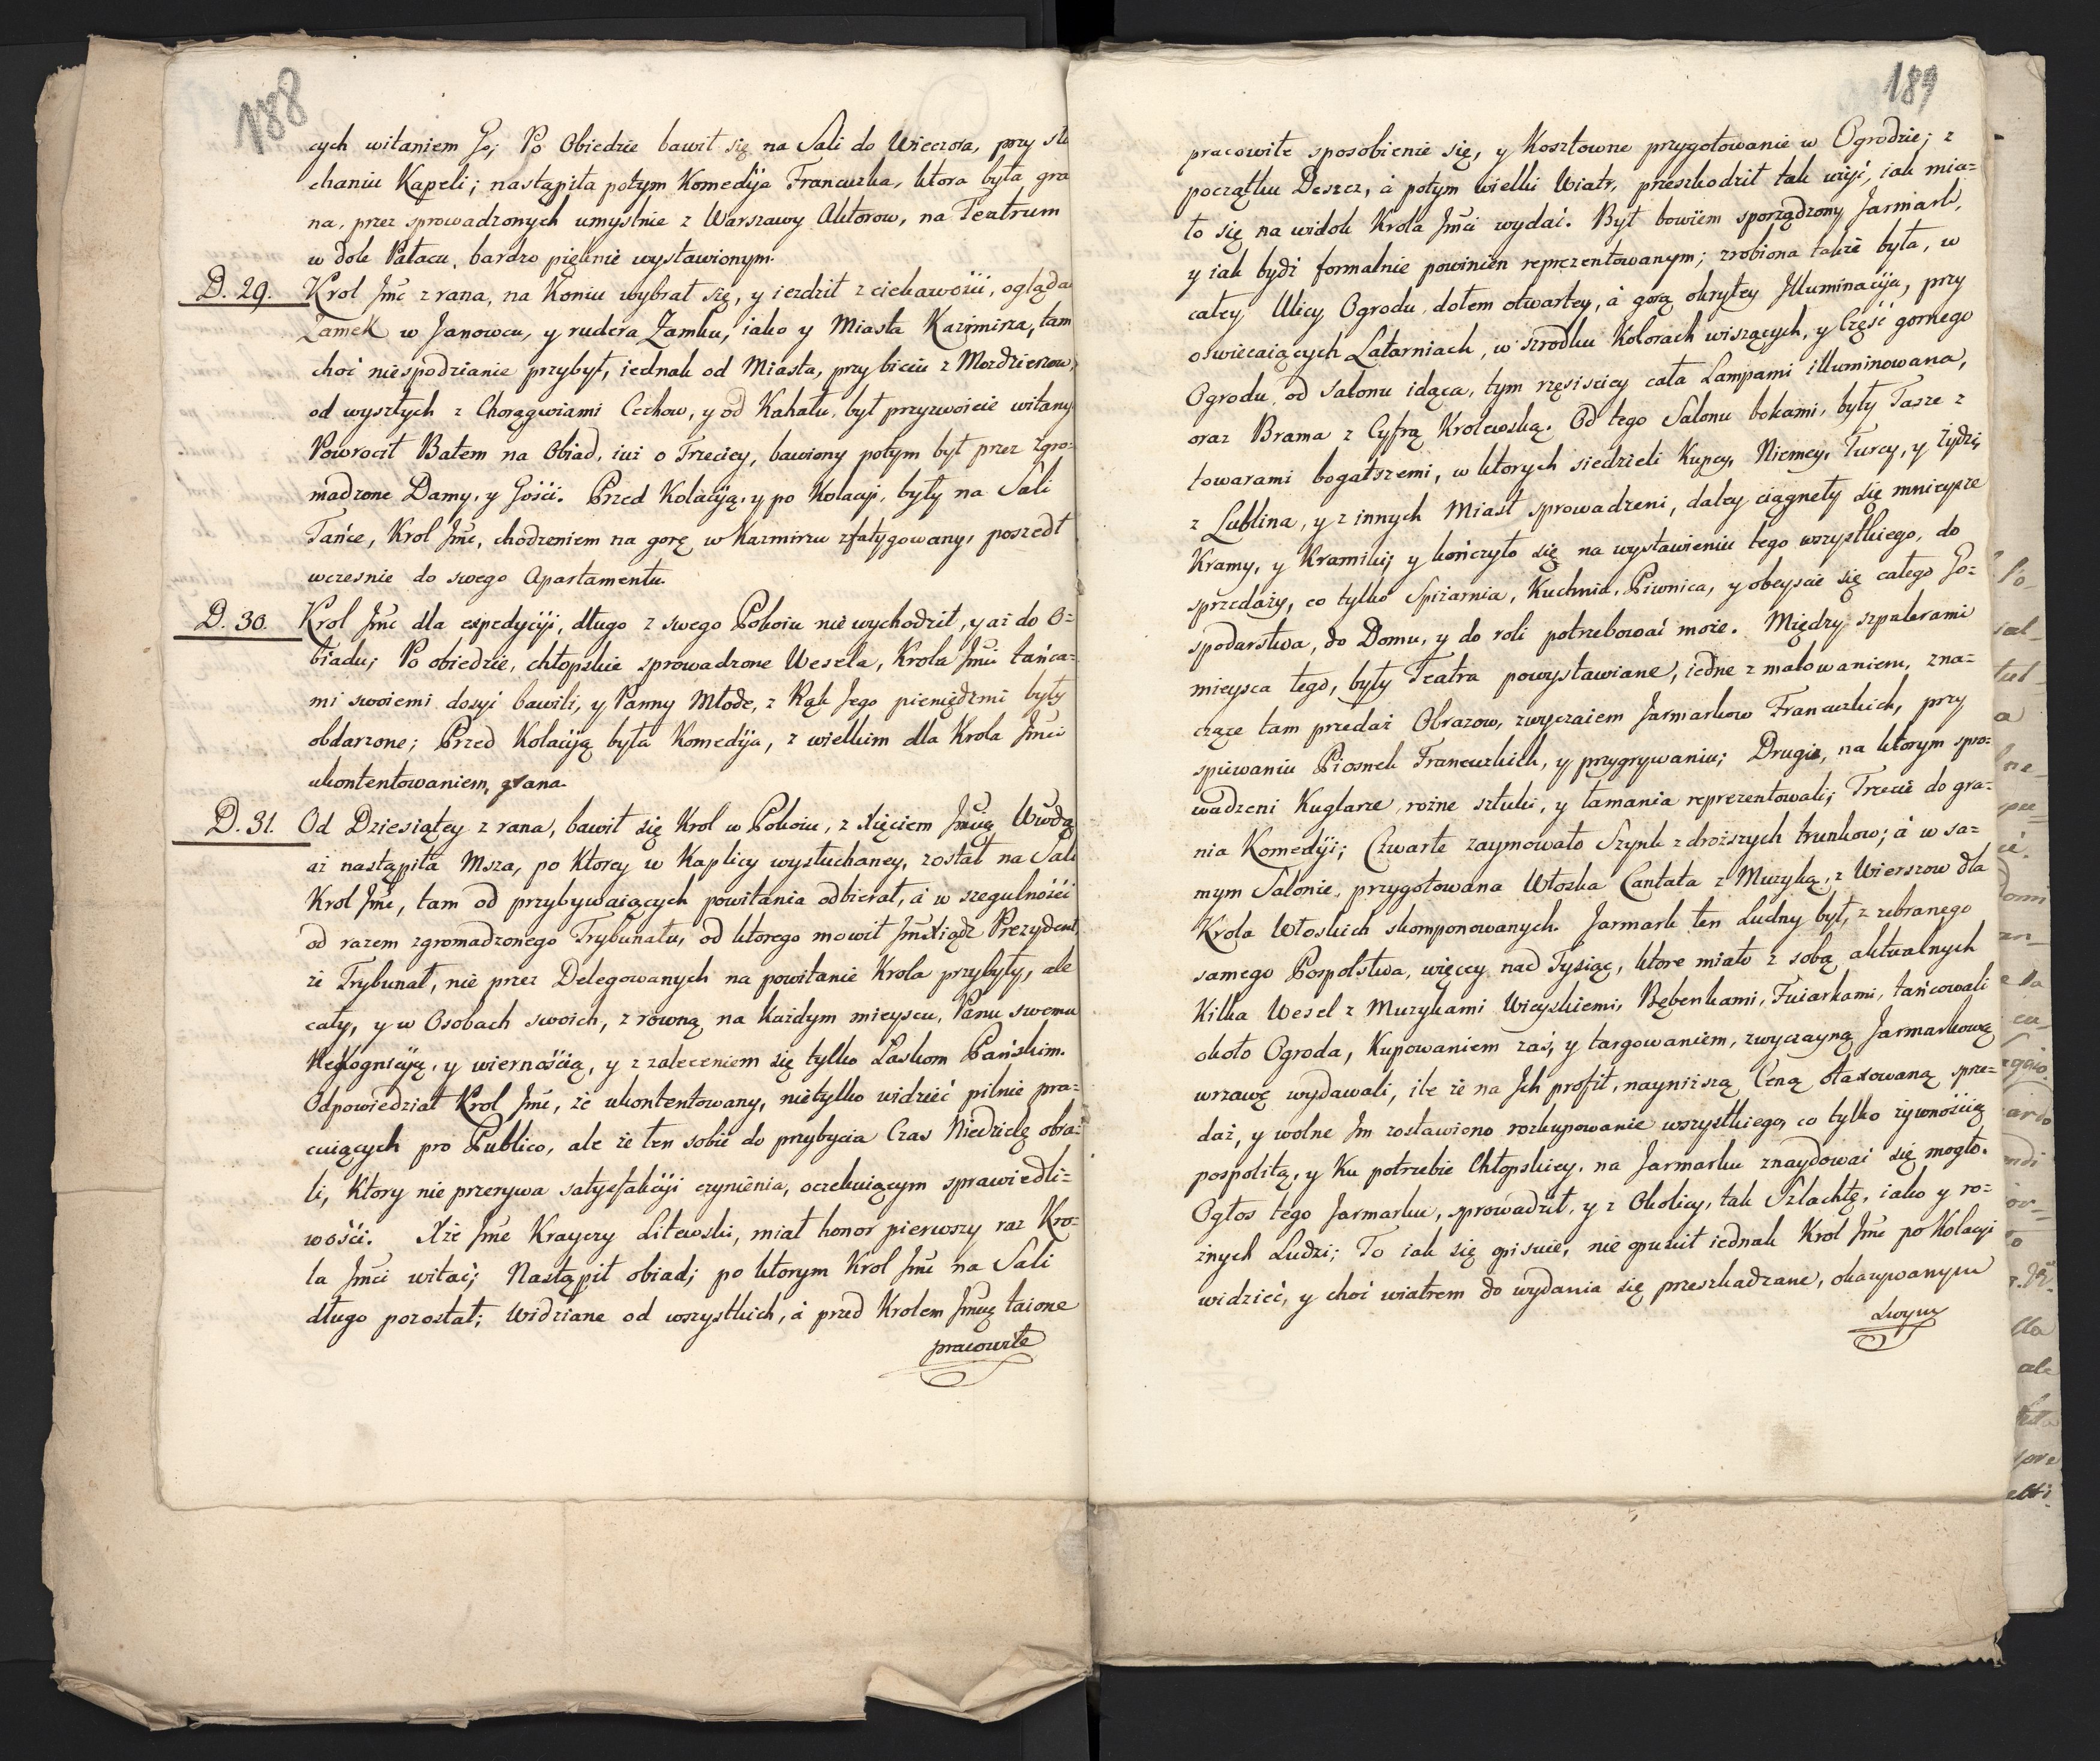 188
cych witaniem Go; Po Obiedzie bawił się na Sali do Wieczora, przy słu
chaniu Kapeli; nastąpiła potym Komedija Francuzka, ktora była gra
na, przez sprowadzonych umyslnie z Warszawy Aktorow, na Teatrum
w dole Pałacu, bardzo pięknie wystawionym.
D. 29. Krol Jmć z rana, na Koniu wybrał się, y iezdził z ciekawości, ogląda
Zamek w Janowcu, y rudera Zamku, iako y Miasta Kazimirza, tam
choć niespodzianie przybył, iednak od Miasta, przy biciu z Mozdzierzow,
od wyszłych z Chorągwiami Cechow, y od Kahału, był przyzwoicie witany.
Powrocił Batem na Obiad, iuż o Trzeciey, bawiony potym był przez zgro=
madzone Damy, y Gości. Przed Kolacyą, y po Kolacyi, były na Sali
Tańce, Krol Jmć, chodzeniem na gorę w Kazmirzu zfatygowany, poszedł
wczesnie do swego Apartamentu.
D. 30. Krol Jmć dla expedycyi, długo z swego Pokoiu nie wychodził, y aż do O=
biadu; Po obiedzie, chłopskie sprowadzone Wesela, Krola Jmci tańca=
mi swoiemi dosyć bawili, y Panny Młode, z Rąk Jego pieniędzmi były
obdarzone; Przed Kolacyą była Komedija, z wielkim dla Krola Jmci
ukontentowaniem, grana.
D. 31. Od Dziesiątey z rana, bawił się Krol w Pokoiu, z Xięciem Jmcią Wwdą
aż nastąpiła Msza, po Ktorey w Kaplicy wysłuchaney, został na Sali
Krol Jmć, tam od przybywaiących powitania odbierał, á w szegulności
od razem zgromadzonego Trybunału, od ktorego mowił Jmć Xiądz Prezydent,
że Trybunał, nie przez Delegowanych na powitanie Krola przybyły, ale
cały, y w Osobach swoich, z rowną na każdym mieyscu, Panu swemu
Rekognicyą, y wiernością, y z zaleceniem się tylko Łaskom Pańskim.
Odpowiedział Krol Jmć, że ukontentowany, nietylko widzieć pilnie pra=
cuiących pro Publico, ale że ten sobie do przybycia Czas Niedzielę obra=
li, Ktory nie przerywa satysfakcyi czynienia, oczekuiącym sprawiedli=
wości. Xże Jmć Krayczy Litewski, miał honor pierwszy raz Kro=
la Jmci witać; Nastąpił obiad; po ktorym Krol Jmć na Sali
długo pozostał; Widziane od wszystkich, á przed Krolem Jmcią taione
pracowite
189
pracowite sposobienie się, y Kosztowne przygotowanie w Ogrodzie; z
początku Deszcz, á potym wielki Wiatr, przeszkodził tak wyiść, iak mia=
ło się na widok Krola Jmci wydać. Był bowiem sporządzony Jarmark,
y iak bydź formalnie powinien reprezentowanym; zrobiona także była, w
całey Ulicy Ogrodu, dołem otwartey, á gorą okrytey Jlluminacyia, przy
oswiecaiących Latarniach, w szrodku Kolorach wiszących, y Część gornego
Ogrodu, od Salonu idąca, tym rzęsisciey cała Lampami illuminowana,
oraz Brama z Cyfrą Krolewską. Od tego Salonu bokami, były Tasze z
towarami bogatszemi, w ktorych siedzieli Kupcy, Niemcy, Turcy, y Żydzi,
z Lublina, y z innych Miast sprowadzeni, daley ciągneły się mnieysze
Kramy, y Kramiki; y kończyło się na wystawieniu tego wszystkiego, do
sprzedaży, co tylko Spiżarnia, Kuchnia, Piwnica, y obeyscie się całego Go=
spodarstwa, do Domu, y do roli potrzebować może. Między szpalerami
mieysca tego, były Teatra powystawiane, iedne z malowaniem, zna=
czące tam przedaż Obrazow, zwyczaiem Jarmarkow Francuzkich, przy
spiewaniu Piosnek Francuzkich, y przygrywaniu; Drugie, na ktorym spro=
wadzeni Kuglarze, rożne sztuki, y łamania reprezentowali; Trzecie do gra=
nia Komedyi; Czwarte zaymowało Szynk z droższych trunkow; á w sa=
mym Salonie, przygotowana Włoska Cantata z Muzyką, z Wierszow dla
Krola Włoskich skomponowanych. Jarmark ten Ludny był, z zebranego
samego Pospolstwa, więcey nad Tysiąc, ktore miało z sobą aktualnych
Kilka Wesel z Muzykami Wieyskiemi, Bębenkami, Fuiarkami, tańcowali
około Ogroda, Kupowaniem zaś, y targowaniem, zwyczayną Jarmarkową
wrzawę wydawali, ile że na Jch profit, naynizszą Ceną otaxowaną sprze=
daż, y wolne Jm zostawiono rozkupowanie wszystkiego, co tylko żywnością
pospolitą, y Ku potrzebie Chłopskiey, na Jarmarku znaydować się mogło.
Ogłos tego Jarmarku, sprowadził, y z Okolicy, tak Szlachtę, iako y ro=
żnych Ludzi; To iak się opisuie, nie opuścił iednak Krol Jmć po Kolacyi
widzieć, y choć wiatrem do wydania się przeszkadzane, okazywanym